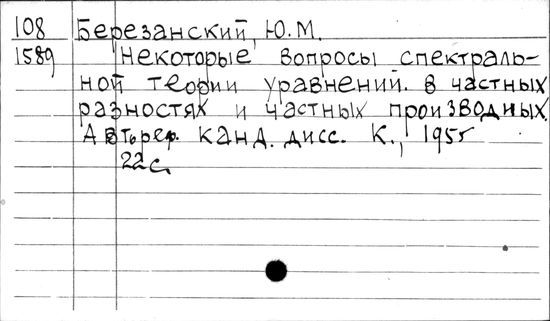 108 Березанский, Ю.М.
1589 Некоторые вопросы спектраль-
ной теории уравнений в частных
разностях и частных производных.
Автореф. канд. дисс. К., 1955
22 с.